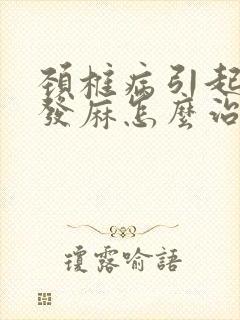 頚椎病引起
發麻怎麼治
瓊露喻語